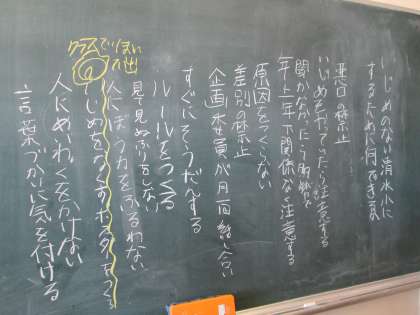 いじめのない清水小に
するために何できるか
悪口の禁止
いじめをやっていたら注意する
聞かなかったら
年上年下関係なく注意する
原因をつくらない
差別の禁止
企画委員が月一回話し合い
すぐにそうだんする
ルールをつくる
見て見ぬふりをしない
人にぼう力をふるわない
いじめをなくすポスターをつくる
人にめいわくをかけない
言葉づかいに気を付ける
クラスで1ぱい